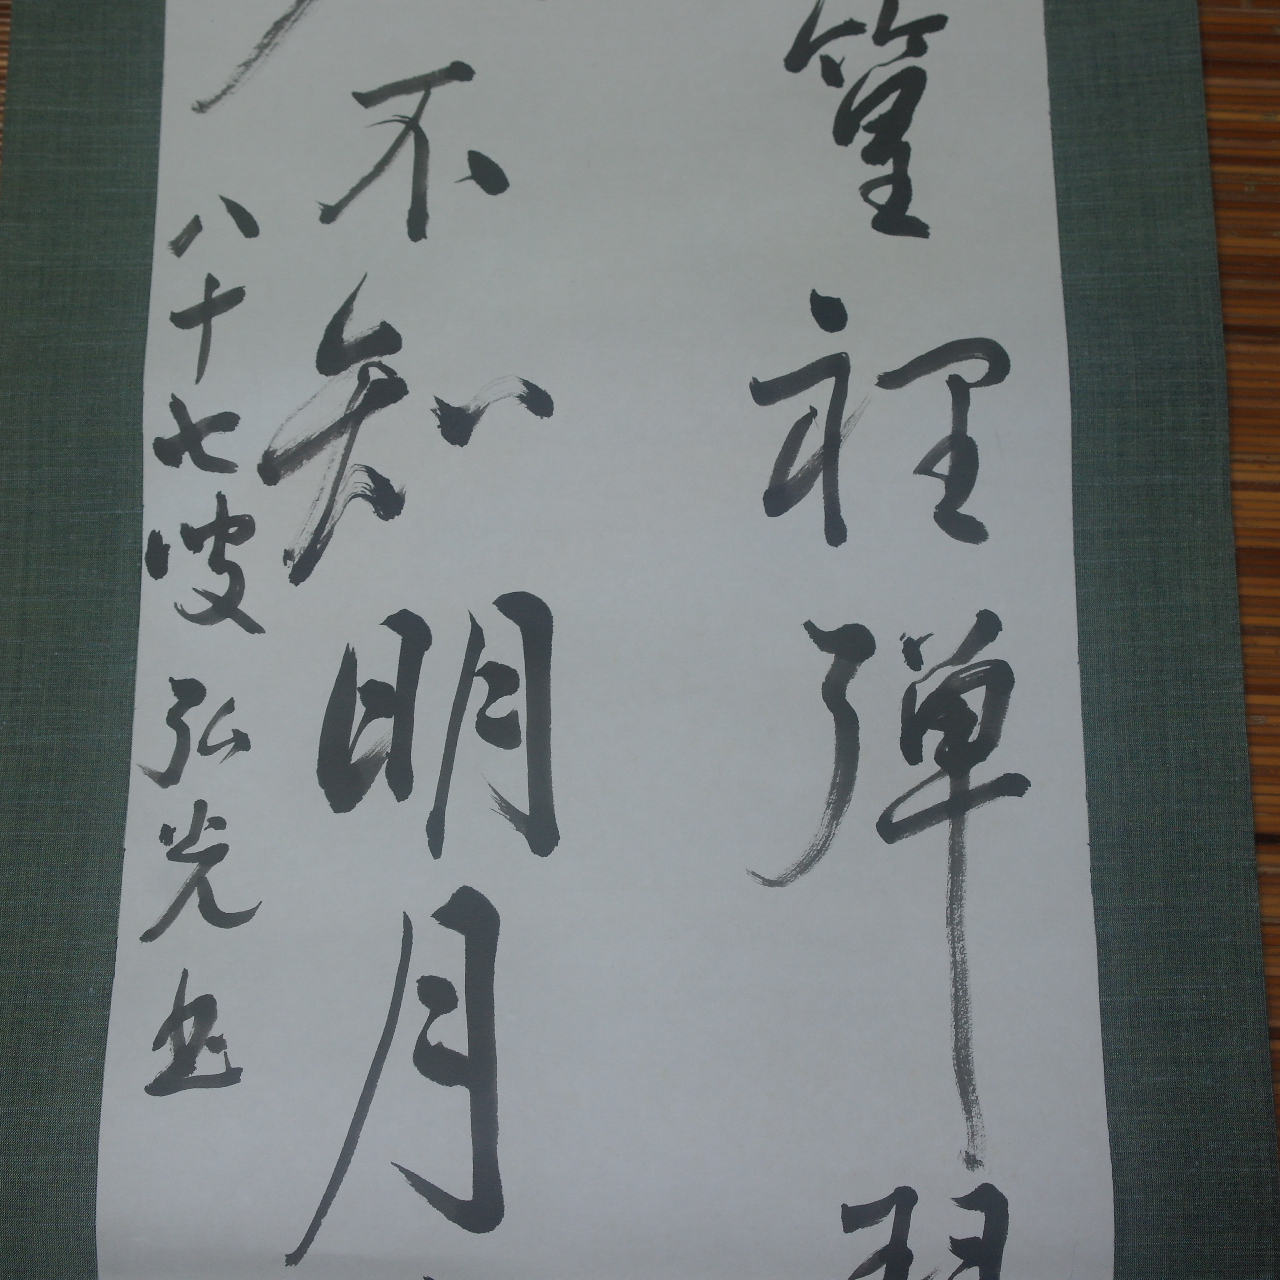 篁裡弾琴
不知明月
八十七叟弘光書